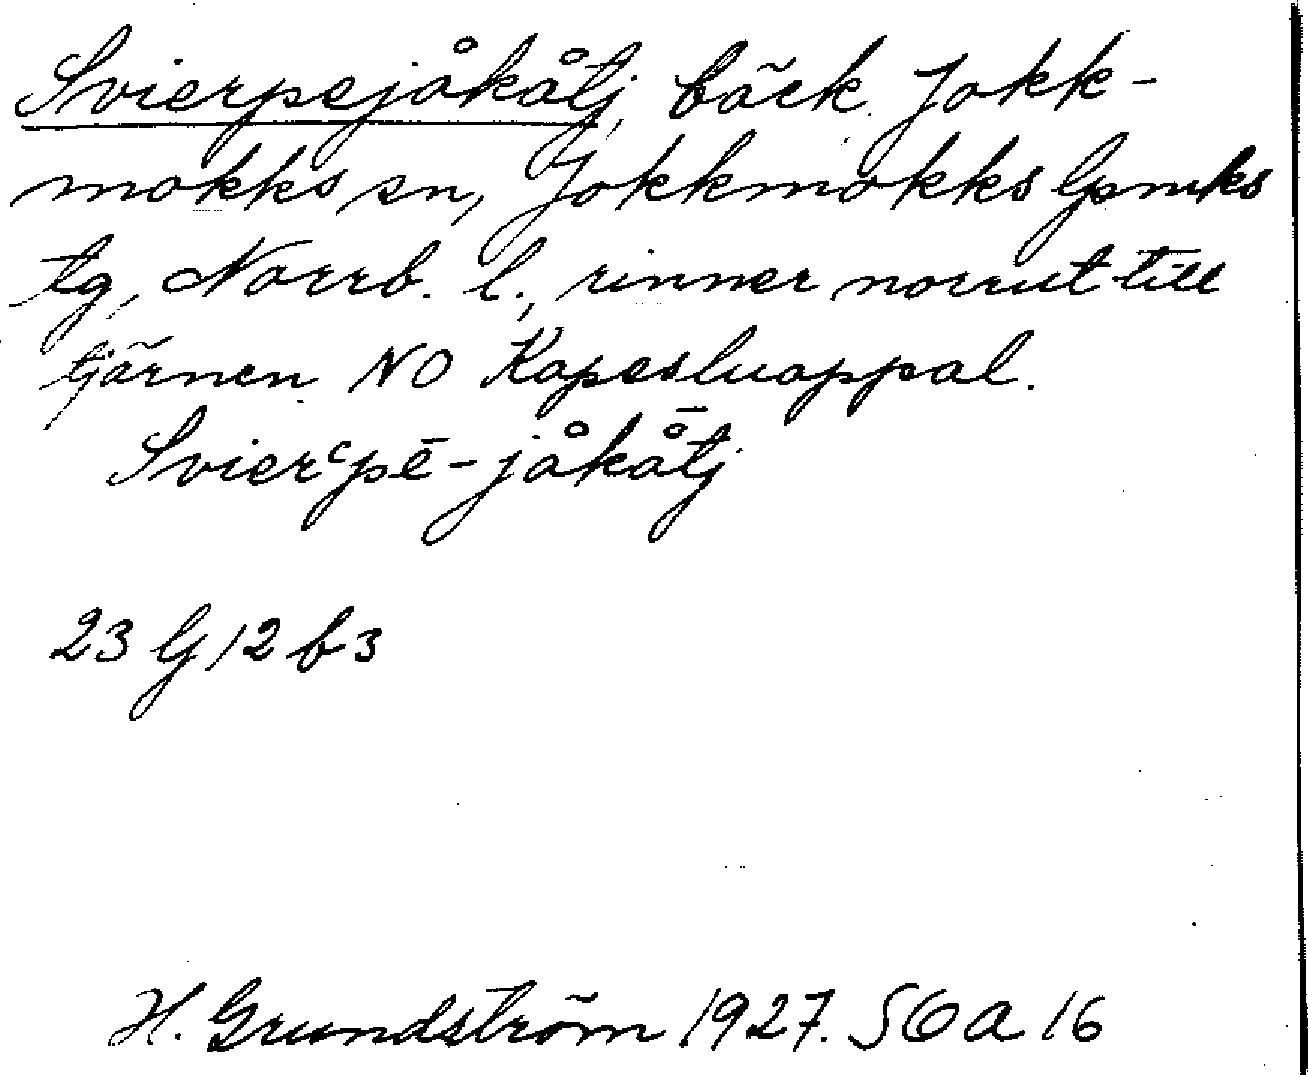 Svierpejåkåtj, bäck. Jokk-
mokks sn, Jokkmokks lpmks
tg, Norrb. l., rinner norrut till
tjärnen NO Kapesluoppal.
Svierʿpē-jåkå̄tj
23 G 12 b 3
H. Grundström 1927. SOA 16